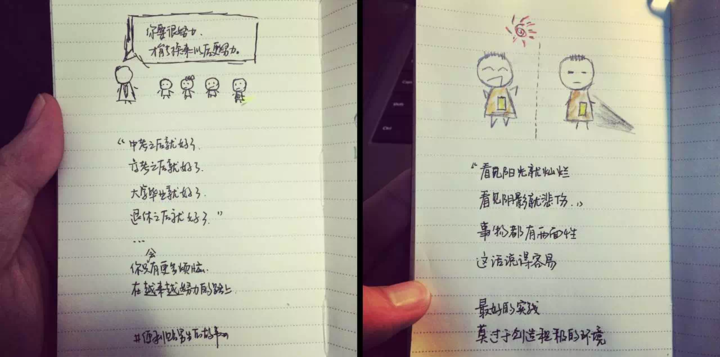 你要很努力,
才能换来以后更努力。
“中考之后就好了
高考之后就好了
大学毕业就好了
退休之后就好了。”
...
你会有更多烦脑。
在越来越努力的路上
#便利贴男生的故事
“看见阳光就灿烂
看见阴影就悲伤。”
事物都有两面性
这话说得容易
最好的实践
莫过于创造积极的环境